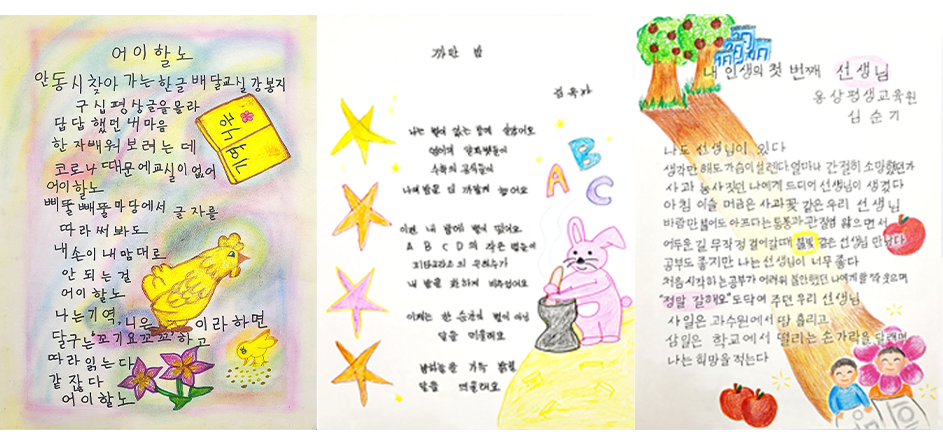 어이할노
안동시 찾아 가는 한글 배달교실 강봉지
구십평상 글을 몰라
답답했던 내 마음
한 자 배워 보려는데
코로나 때문에 교실이 없어
어이할노
삐뚤빼뚤 마당에서 글자를
따라 써봐도
내 손이 내 맘대로
안 되는 걸
어이할노
나는 기역, 니은 이라 하면
달구는 꼬기요 꼬꼬 하고
따라 읽는다
같잖다
어이할노
국어
까만 밤
김옥자
나는 별이 없는 밤에 살았어요
영어의 알파벳들이
수학의 공식들이
나의 밤을 더 까맣게 했어요
이젠 내 밤에 별이 떴어요
A B C D의 작은 별들이
피타고라스의
내 밤을 환하게 비추었어요
이제는 한 순간의 별이 아닌
달을 띄울래요
밤하늘을 가득 밝힐
달을 띄울래요
A B C
내 인생의 첫 번째 선생님
용상평생교육원
심순기
나도 선생님이 있다
생각만 해도 가슴이 설렌다 얼마나 간절히 소망했던가
사과 농사 짓던 나에게 드디어 선생님이 생겼다
아침 이슬 머금은 사과꽃 같은 우리 선생님
바람만 불어도 아프다는 통풍과 관절염 앓으면서
어두운 길 무작정 걸어갈 때 불빛 같은 선생님 만났다
공부도 좋지만 나는 선생님이 너무 좋다
처음 시작하는 공부가 어려워 불안했던 나에게 활짝 웃으며
"정말 잘해요" 도닥여 주던 우리 선생님
사일은 과수원에서 땀 흘리고
삼일은 학교에서 떨리는 손가락을 달래며
나는 희망을 적는다